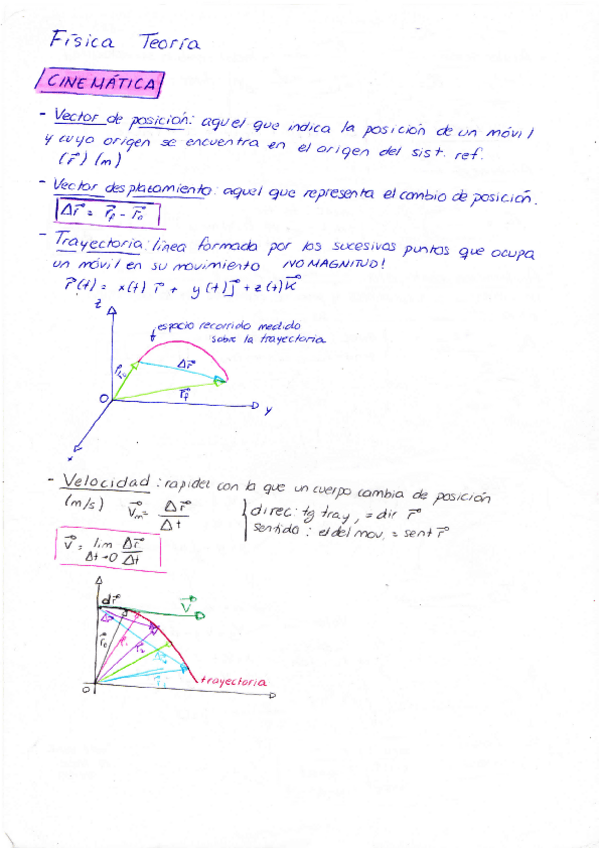 Física Teoría
CINEMÁTICA
- Vector de posición: aquel que indica la posición de un móvil
y cuyo origen se encuentra en el origen del sist. ref.
(r⃗) (m)
- Vector desplazamiento: aquel que representa el cambio de posición.
Δr⃗ = r⃗f - r⃗o
- Trayectoria: línea formada por los sucesivos puntos que ocupa
un móvil en su movimiento ¡NO MAGNITUD!
r⃗(t) = x(t) i⃗ + y(t) j⃗ + z(t) k⃗
z
espacio recorrido medido
sobre la trayectoria
Δr⃗
r⃗f
O
y
x
- Velocidad: rapidez con la que un cuerpo cambia de posición
(m/s) v⃗m = Δr⃗ / Δt
direc: tg tray, = dir r⃗
sentido: el del mov. = sent r⃗
v⃗ = lim Δt→0 Δr⃗ / Δt
dr⃗
v⃗
Δr⃗
r⃗o
trayectoria
O